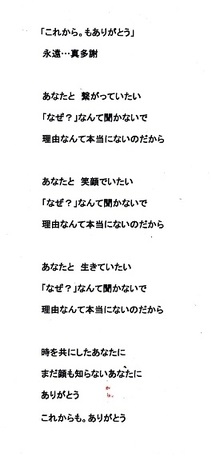 「これから。もありがとう」
永遠…真多謝
あなたと 繋がっていたい
「なぜ？」なんて聞かないで
理由なんて本当にないのだから
あなたと 笑顔でいたい
「なぜ？」なんて聞かないで
理由なんて本当にないのだから
あなたと 生きていたい
「なぜ？」なんて聞かないで
理由なんて本当にないのだから
時を共にしたあなたに
まだ顔も知らないあなたに
ありがとう
これからも。ありがとう